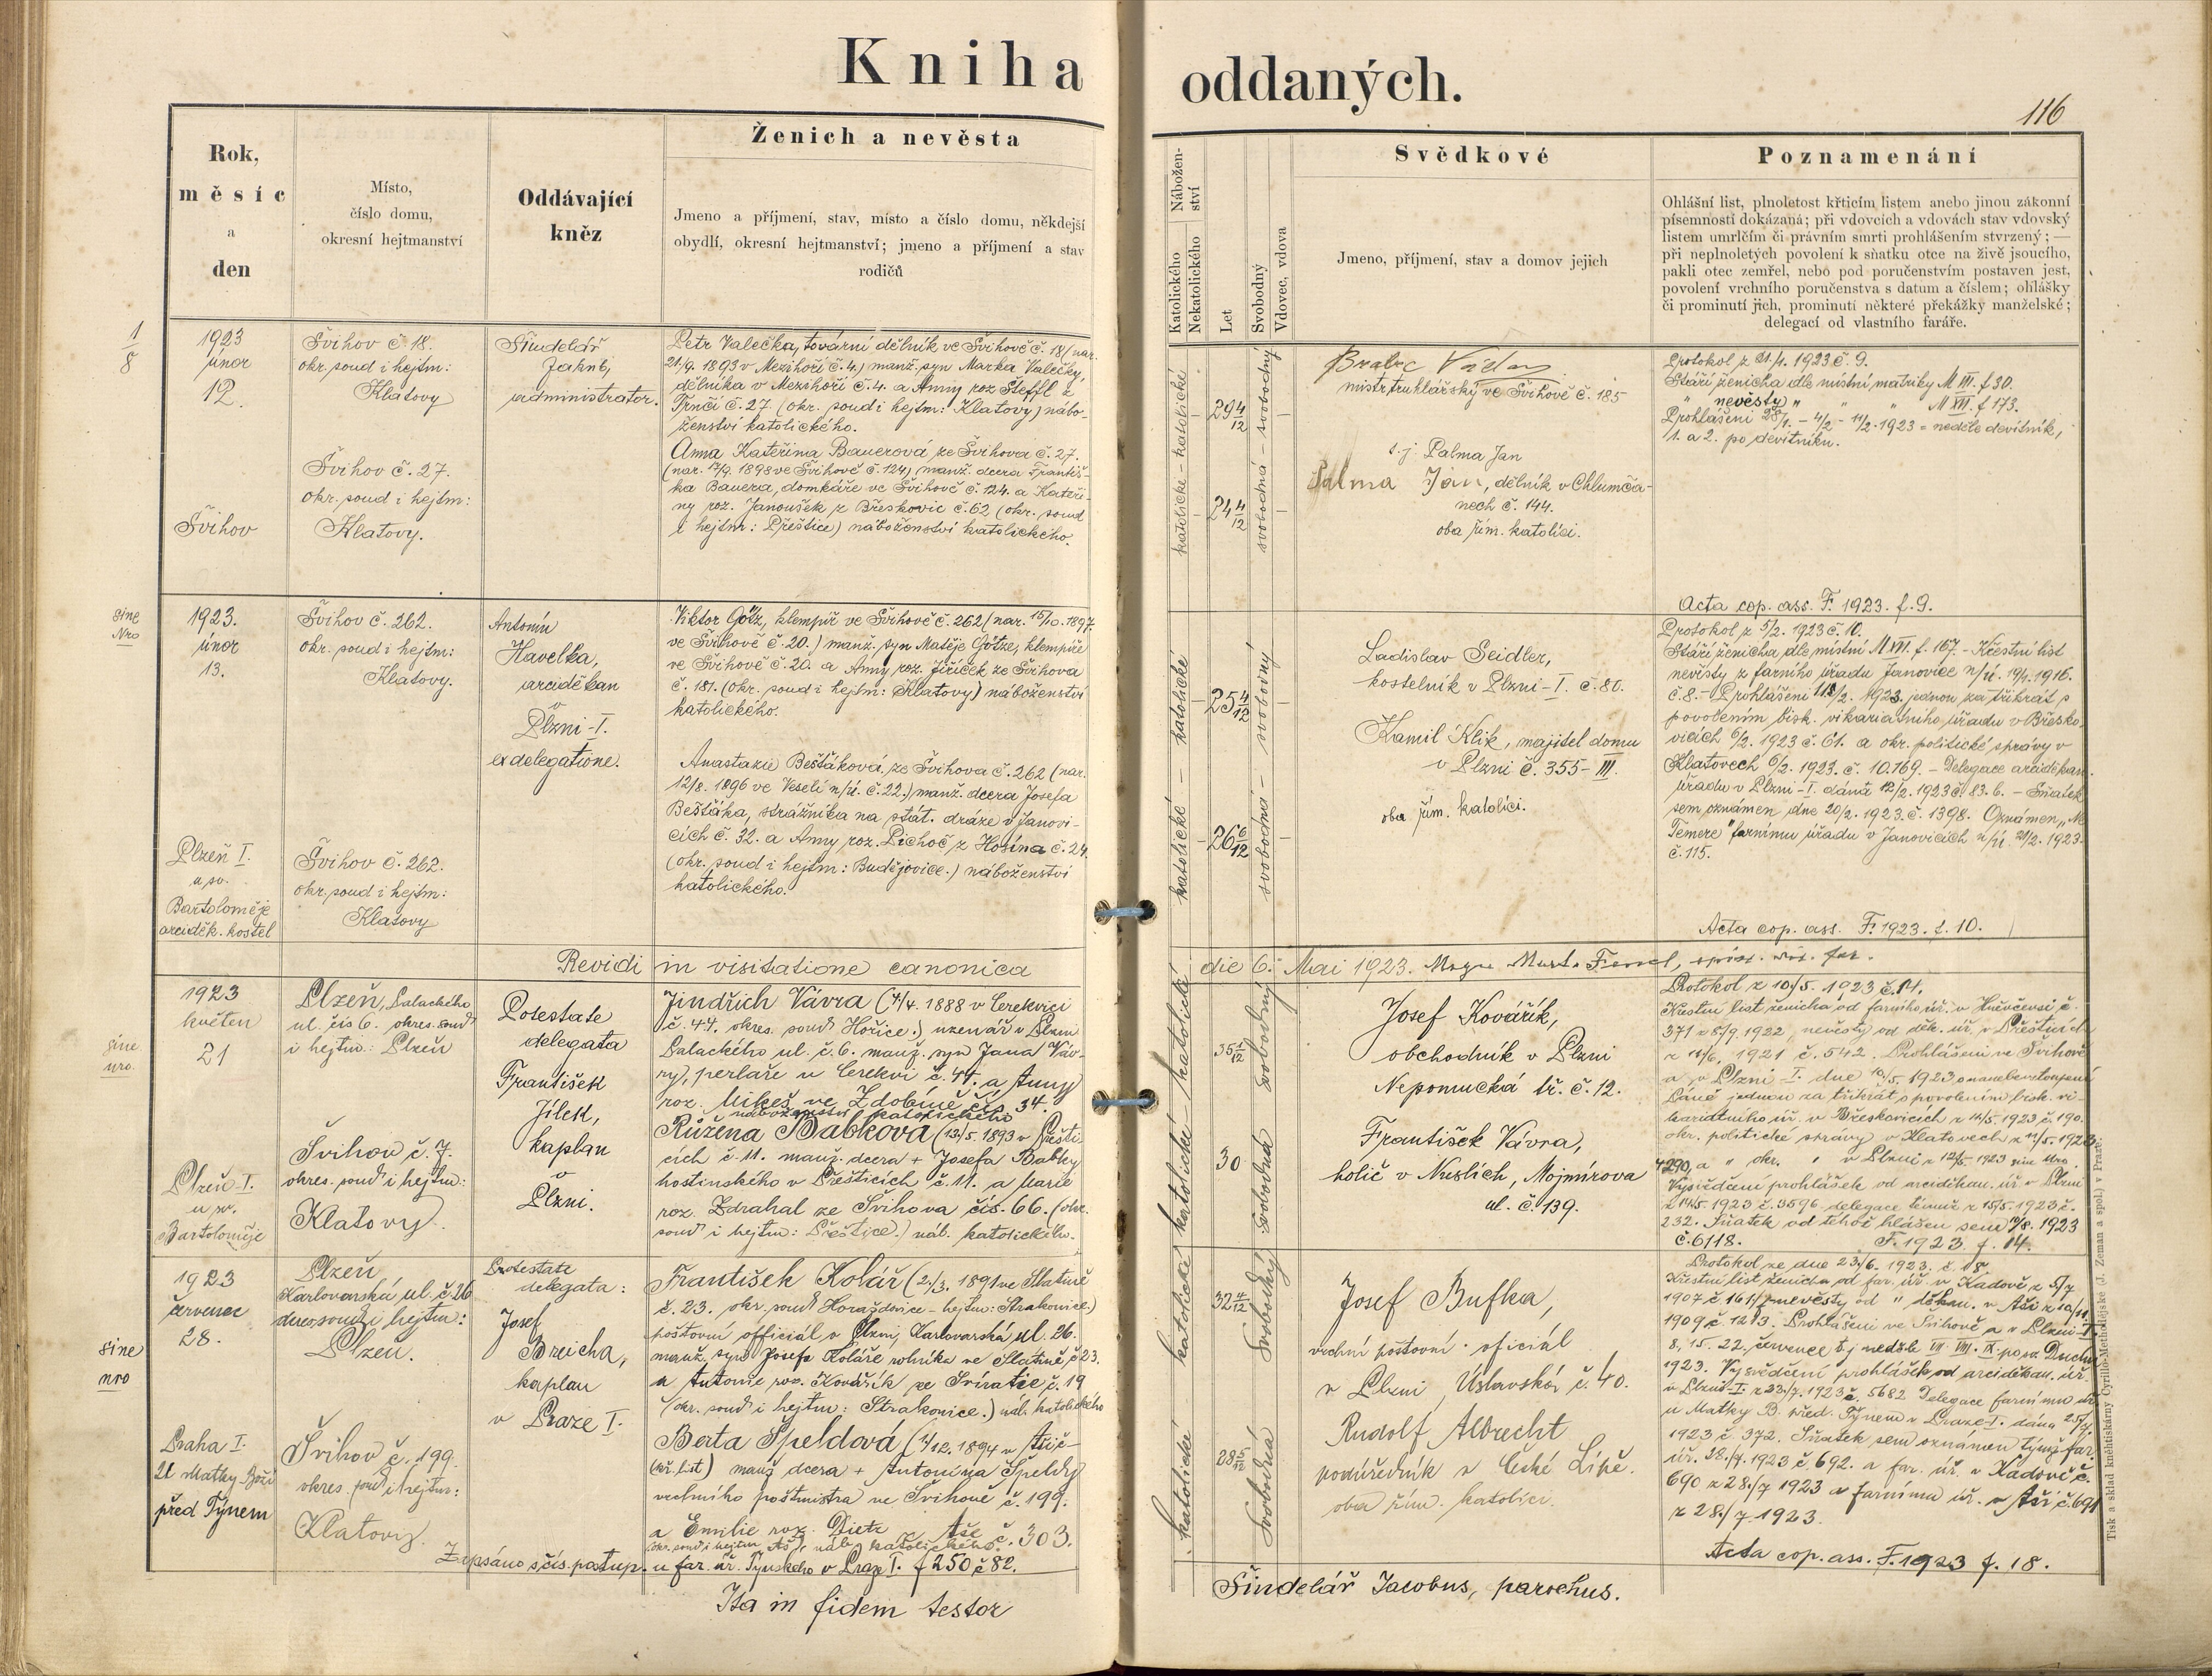 Kniha oddaných.
116
Rok,
měsíc
a
den
Místo,
číslo domu,
okresní hejtmanství
Oddávající
kněz
Ženich a nevěsta
Jmeno a příjmení, stav, místo a číslo domu, někdejší
obydlí, okresní hejtmanství; jmeno a příjmení a stav
rodičů
Nábožen-
ství
Katolického
Nekatolického
Let
Svobodný
Vdovec, vdova
Svědkové
Jmeno, příjmení, stav a domov jejich
Poznamenání
Ohlášní list, plnoletost křticím listem anebo jinou zákonní
písemností dokázaná; při vdovcích a vdovách stav vdovský
listem umrlčím či právním smrti prohlášením stvrzený; —
při neplnoletých povolení k sňatku otce na živě jsoucího,
pakli otec zemřel, nebo pod poručenstvím postaven jest,
povolení vrchního poručenstva s datum a číslem; ohlášky
či prominutí jich, prominutí některé překážky manželské;
delegací od vlastního faráře.
1
8
1923
únor
12.
Švihov
Švihov č 18.
okr. soud i hejtm:
Klatovy
Švihov č. 27.
okr. soud i hejtm:
Klatovy.
Šindelář
Jakub,
administrator.
Petr Valečka, tovární dělník ve Švihově č. 18 (nar.
21/9. 1893 v Mezihoří č. 4.) manž. syn Marka Valečky,
dělníka v Mezihoří č. 4. a Anny roz Steffl z
Trnčí č. 27 (okr. soud i hejtm: Klatovy) nábo-
ženství katolického.
Anna Kateřina Bauerová ze Švihova č. 27.
(nar. 17/9. 1898 ve Švihově č. 124) manž. dcera Františ-
ka Bauera, domkáře ve Švihově č. 124. a Kateři-
ny roz. Janoušek z Břeskovic č. 62 (okr. soud
i hejtm: Přeštice) náboženství katolického.
katolické - katolické
29 4/12
24 4/12
svobodná - svobodný
Brabec Václav
mistr truhlářský ve Švihově č. 185
t. j. Palma Jan
Palma Jan, dělník v Chlumča-
nech č. 144.
oba řím. katolíci.
Protokol z 21/4. 1923 č. 9.
Stáří ženicha dle místní matriky M III. f 30.
" nevěsty " " " M XII. f 173.
Prohlášení 28/1. - 4/2 - 11/2. 1923 = neděle devítník,
1. a 2. po devítníku.
Acta cop. ass. F. 1923. f. 9.
sine
Nro
1923.
únor
13.
Plzeň I.
u sv.
Bartoloměje
arciděk. kostel
Švihov č. 262.
okr. soud i hejtm:
Klatovy.
Švihov č. 262.
okr. soud i hejtm:
Klatovy
Antonín
Havelka,
arciděkan
v
Plzni-I.
ex delegatione.
Viktor Götz, klempíř ve Švihově č. 262 (nar. 15/10. 1897.
ve Švihově č. 20.) manž. syn Matěje Götze, klempíře
ve Švihově č. 20. a Anny roz. Jiříček ze Švihova
č. 181. (okr. soud i hejtm: Klatovy) náboženství
katolického.
Anastazie Bešťáková ze Švihova č. 262 (nar.
12/8. 1896 ve Veselí n/ú. č. 22.) manž. dcera Josefa
Bešťáka, strážníka na stát. dráze v Janovi-
cích č. 32. a Anny roz. Pichoč z Hosína č. 24.
(okr. soud i hejtm: Budějovice.) náboženství
katolického.
katolické - katolické
25 4/12
26 6/12
svobodná - svobodný
Ladislav Seidler,
kostelník v Plzni-I. č. 80.
Kamil Klik, majitel domu
v Plzni č. 355-III.
oba řím. katolíci.
Protokol z 5/2. 1923 č. 10.
Stáří ženicha dle místní M XII. f. 167. - Křestní list
nevěsty z farního úřadu Janovice n/ú. 19/1. 1916.
č. 8. - Prohlášení 11/2. 1923. jednou za třikrát s
povolením bisk. vikariatního úřadu v Břesko-
vicích 6/2. 1923 č. 61. a okr. politické správy v
Klatovech 6/2. 1923. č. 10.169. - Delegace arciděkan.
úřadu v Plzni-I. dána 12/2. 1923 č. 83. 6. - Sňatek
sem oznámen dne 20/2. 1923. č. 1398. Oznámen „Ne
Temere" farnímu úřadu v Janovicích n/ú. 21/2. 1923.
č. 115.
Acta cop. ass. F. 1923. f. 10.
Revidi in visitatione canonica die 6. Mai 1923.
sine
nro.
1923
květen
21
Plzeň-I.
u sv.
Bartoloměje
Plzeň, Palackého
ul. čís 6. okres. soud
i hejtm.: Plzeň
Švihov č. 7.
okres. soud i hejtm:
Klatovy.
Potestate
delegata
František
Jílek,
kaplan
v
Plzni.
Jindřich Vávra (4/4. 1888 v Cerekvici
č. 44. okres. soud Hořice.) uzenář v Plzni
Palackého ul. č. 6. manž. syn Jana Váv-
ry, perlaře v Cerekvi č. 44. a Anny
roz. Mikeš ve Zdobíně č. 34.
náboženství katolického
Růžena Babková (13/5. 1893 v Přešti-
cích č. 11. manž. dcera + Josefa Babky
hostinského v Přešticích č. 11. a Marie
roz. Zdrahal ze Švihova čís. 66. (okr.
soud i hejtm: Přeštice.) náb. katolického.
katolické - katolické
35 1/12
30
svobodná svobodný
Josef Kovářík,
obchodník v Plzni
Nepomucká tř. č. 12.
František Vávra,
holič v Nuslích, Mojmírova
ul. č. 139.
Protokol z 10/5. 1923 č. 14.
371 z 8/9. 1922, nevěsty od děk. úř. v Přešticích
z 14/6. 1921 č. 542. Prohlášení ve Švihově
a v Plzni I. dne 10/5. 1923 o nanebevstoupení
Páně jednou za třikrát s povolením bisk. vi-
kariatního úř. v Břeskovicích z 11/5. 1923 č. 190.
okr. politické správy v Klatovech z 11/5. 1923
4290, a " okr. " v Plzni z 12/5. 1923 sine Nro.
Vysvědčení prohlášek od arciděkan. úř. v Plzni
z 14/5. 1923 č. 3596 delegace témuž z 15/5. 1923 č.
232. Sňatek od téhož hlášen sem 1923
č. 6118. F. 1923. f. 14.
sine
nro
1923
červenec
28.
Praha I.
U Matky Boží
před Týnem
Plzeň
Karlovarská ul. č. 26
okres. soud i hejtm:
Plzeň.
Švihov č. 199.
okres. soud i hejtm:
Klatovy.
Potestate
delegata:
Josef
Breicha,
kaplan
v Praze I.
František Kolář (2./3. 1891 ve Slatině
č. 23. okr. soud Horažďovice - hejtm: Strakonice.)
poštovní officiál v Plzni, Karlovarská ul. 26.
manž. syn Josefa Koláře rolníka ve Slatině č 23.
a Antonie roz. Kovářík ze Svíratic č. 19
(okr. soud i hejtm: Strakonice.) náb. katolického
Berta Špeldová (4/12. 1894 v Aši č-
(kř. list) manž dcera + Antonína Špeldy
vrchního poštmistra ve Švihově č. 199.
a Emilie roz. Dietz z Aše č. 303.
(okr. soud i hejtm Aš), náb. katolického.
Zapsáno s čís. postup. u far. úř. Týnského v Praze I. f 250 č 82.
katolické katolické
32 4/12
28
Svobodná Svobodný
Josef Bufka,
vrchní poštovní oficiál
v Plzni, Úslavská č. 40.
Rudolf Albrecht
podúředník v České Lípě.
oba řím. katolíci.
Protokol ze dne 23/6. 1923. č. 18.
Křestní list ženicha od far. úř. v Kadově z 5/7
1907 č. 161, nevěsty od " děkan. v Aši z 10/11
1909 č. 1213. Prohlášení ve Švihově a v Plzni-I.
8, 15. 22. července t. j neděle VII. VIII. IX. po sv. Duchu
1923. Vysvědčení prohlášek od arciděkan. úř.
v Plzni-I. z 23/7. 1923 č. 5682. Delegace farnímu úř.
u Matky B. před. Týnem v Praze-I. dána 25/7
1923 č. 372. Sňatek sem oznámen týmž far.
úř. 28./7. 1923 č 692. a far. úř. v Kadově č.
690 z 28./7 1923 a farnímu úř. v Aši č. 691
z 28./7. 1923.
Acta cop. ass. F. 1923 f. 18.
Ita in fidem testor Šindelář Jacobus, parochus.
Tisk a sklad knihtiskárny Cyrillo-Methodějské (J. Zeman a spol.) v Praze.